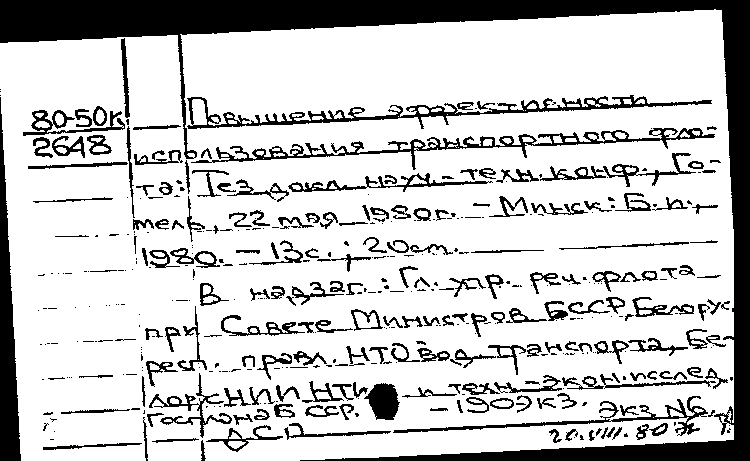 80-50к Повышение эффективности
2648 использования транспортного фло-
та: Тез докл. науч.-техн. конф., Го-
мель, 22 мая 1980г. - Минск: Б.и.,
1980. - 13с.; 20см.
В надзаг.: Гл. упр. реч. флота
при Совете Министров БССР, Белорус.
респ. правл. НТО вод. транспорта, Бе-
лорНИИНТИ и техн.-экон. исслед.
Госплана Б ССР. - 190экз. Экз №6.
ДСП
20.VIII.80